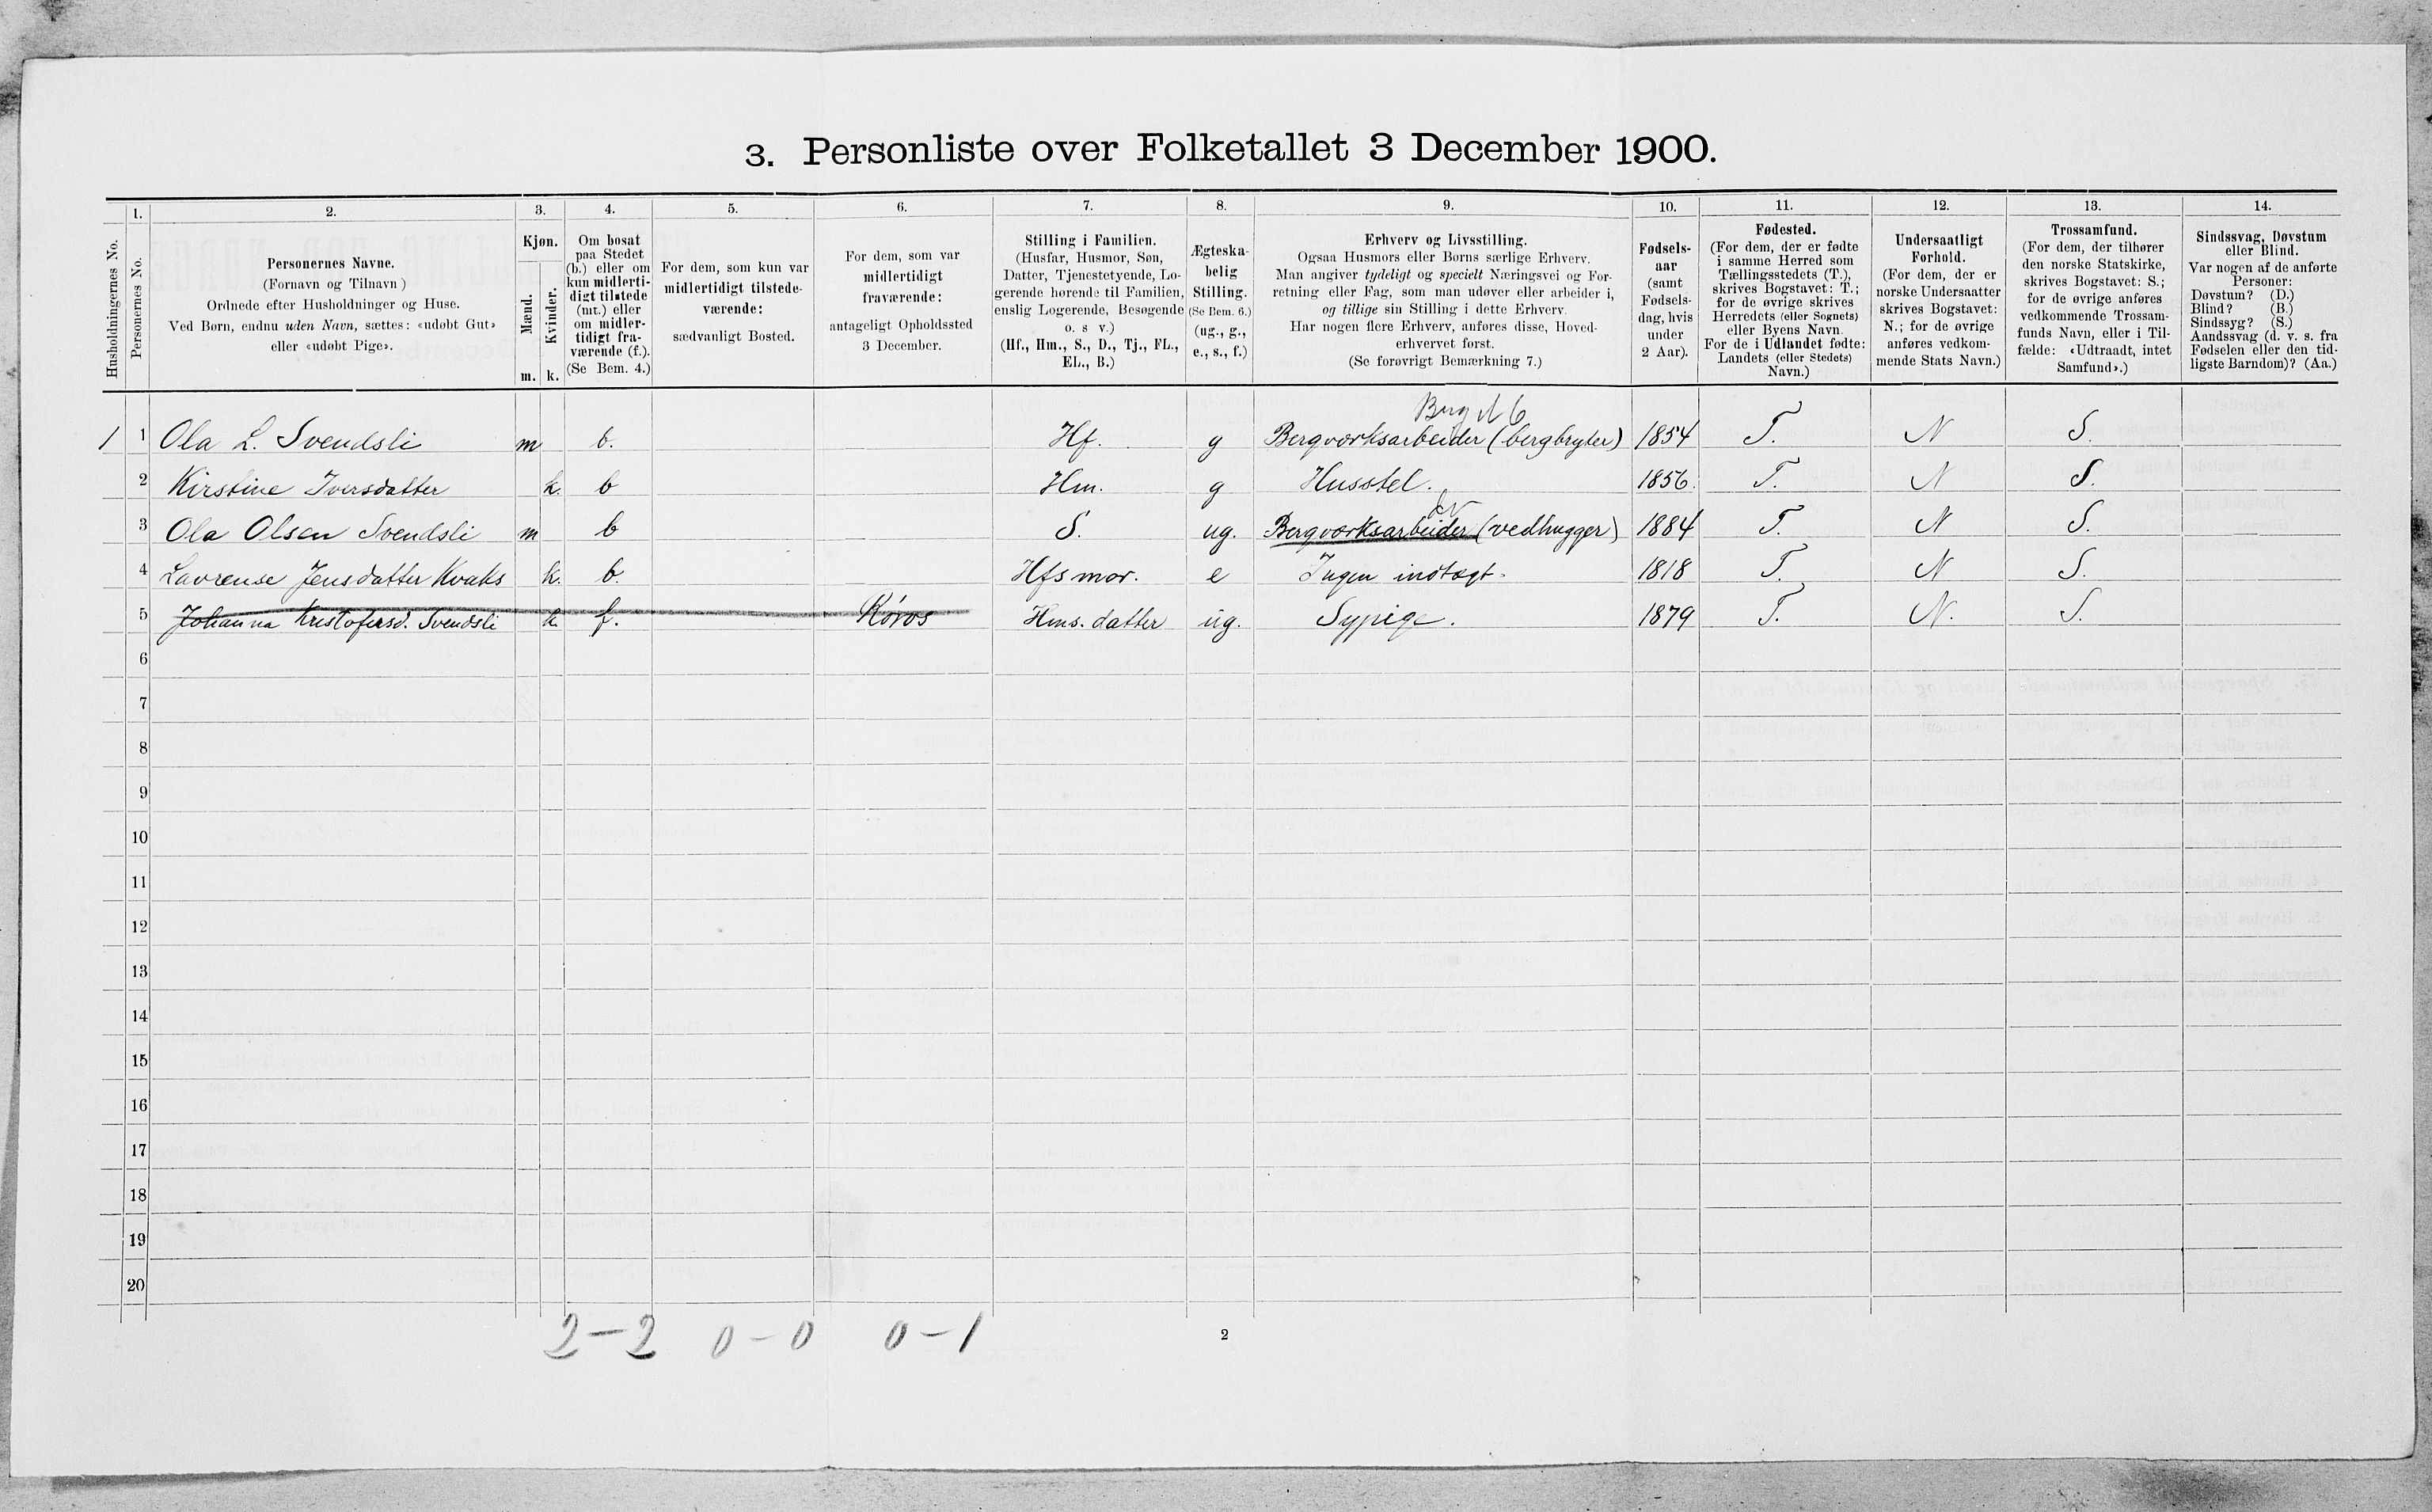 3. Personliste over Folketallet 3 December 1900.
Husholdningernes No.
1.
Personernes No.
2.
Personernes Navne.
(Fornavn og Tilnavn)
Ordnede efter Husholdninger og Huse.
Ved Børn, endnu uden Navn, sættes: «udøbt Gut»
eller «udøbt Pige».
3.
Kjøn.
Mænd.
Kvinder.
m. k.
4.
Om bosat
paa Stedet
(b.) eller om
kun midlerti-
digt tilstede
(mt.) eller
om midler-
tidigt fra-
værende (f.).
(Se Bem. 4.)
5.
For dem, som kun var
midlertidigt tilstede-
værende:
sædvanligt Bosted.
6.
For dem, som var
midlertidigt
fraværende:
antageligt Opholdssted
3 December.
7.
Stilling i Familien.
(Husfar, Husmor, Søn,
Datter, Tjenestetyende, Lo-
gerende hørende til Familien,
enslig Logerende, Besøgende
o. s v.)
(Hf., Hm., S., D., Tj., FL.,
EL., B.)
8.
Ægteska-
belig
Stilling.
(Se Bem. 6.)
(ug., g.,
e., s., f.)
9.
Erhverv og Livsstilling.
Ogsaa Husmors eller Børns særlige Erhverv.
Man angiver tydeligt og specielt Næringsvei og For-
retning eller Fag, som man udøver eller arbeider i,
og tillige sin Stilling i dette Erhverv.
Har nogen flere Erhverv, anføres disse, Hoved-
erhvervet først.
(Se forøvrigt Bemærkning 7.)
10.
Fødsels-
aar
(samt
Fødsels-
dag, hvis
under
2 Aar).
11.
Fødested.
(For dem, der er fødte
i samme Herred som
Tællingsstedets (T.),
skrives Bogstavet: T.;
for de øvrige skrives
Herredets (eller Sognets)
eller Byens Navn.
For de i Udlandet fødte:
Landets (eller Stedets)
Navn.)
12.
Undersaatligt
Forhold.
(For dem, der er
norske Undersaatter
skrives Bogstavet:
N.; for de øvrige
anføres vedkom-
mende Stats Navn.)
13.
Trossamfund.
(For dem, der tilhører
den norske Statskirke,
skrives Bogstavet: S.;
for de øvrige anføres
vedkommende Trossam-
funds Navn, eller i Til-
fælde: «Udtraadt, intet
Samfund».)
14.
Sindssvag, Døvstum
eller Blind.
Var nogen af de anførte
Personer:
Døvstum? (D.)
Blind? (B.)
Sindssyg? (S.)
Aandssvag (d. v. s. fra
Fødselen eller den tid-
ligste Barndom)? (Aa.)
1 1 Ola L. Svendsli m b. Hf. g Bergværksarbeider (bergbryter) 1854 T. N S.
2 Kirstine Iversdatter k. b Hm. g Husstel. 1856. T. N S.
3 Ola Olsen Svendsli m b S. ug. Bergværksarbeider (vedhugger) 1884 T. N S.
4 Lavrense Jensdatter Kvaks k. b. Hfs mor. e Ingen indtægt. 1818 T. N S.
5 Johanna Kristofersd. Svendsli k. f. Røros Hms. datter ug. Sypige. 1879 T. N. S.
6
7
8
9
10
11
12
13
14
15
16
17
18
19
20
2-2 0-0 0-1
2